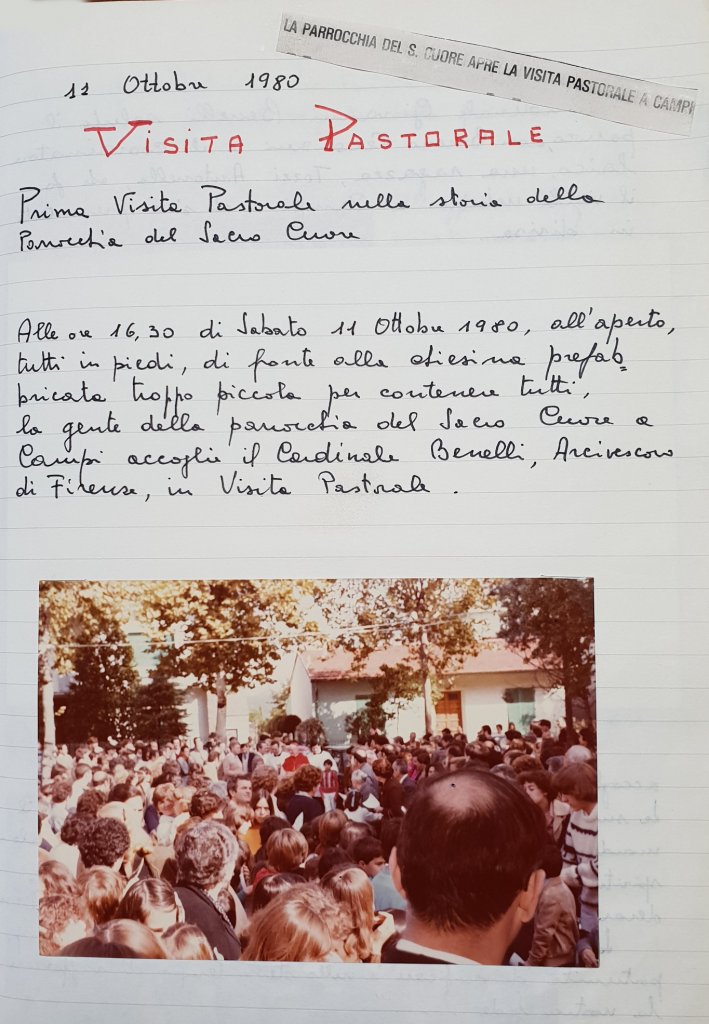 LA PARROCCHIA DEL S. CUORE APRE LA VISITA PASTORALE A CAMPI
11 Ottobre 1980
VISITA PASTORALE
Prima Visita Pastorale nella storia della
Parrocchia del Sacro Cuore
Alle ore 16,30 di Sabato 11 Ottobre 1980, all'aperto,
tutti in piedi, di fronte alla chiesina prefab=
bricata troppo piccola per contenere tutti,
la gente della parrocchia del Sacro Cuore a
Campi accoglie il Cardinale Benelli, Arcivescovo
di Firenze, in Visita Pastorale.